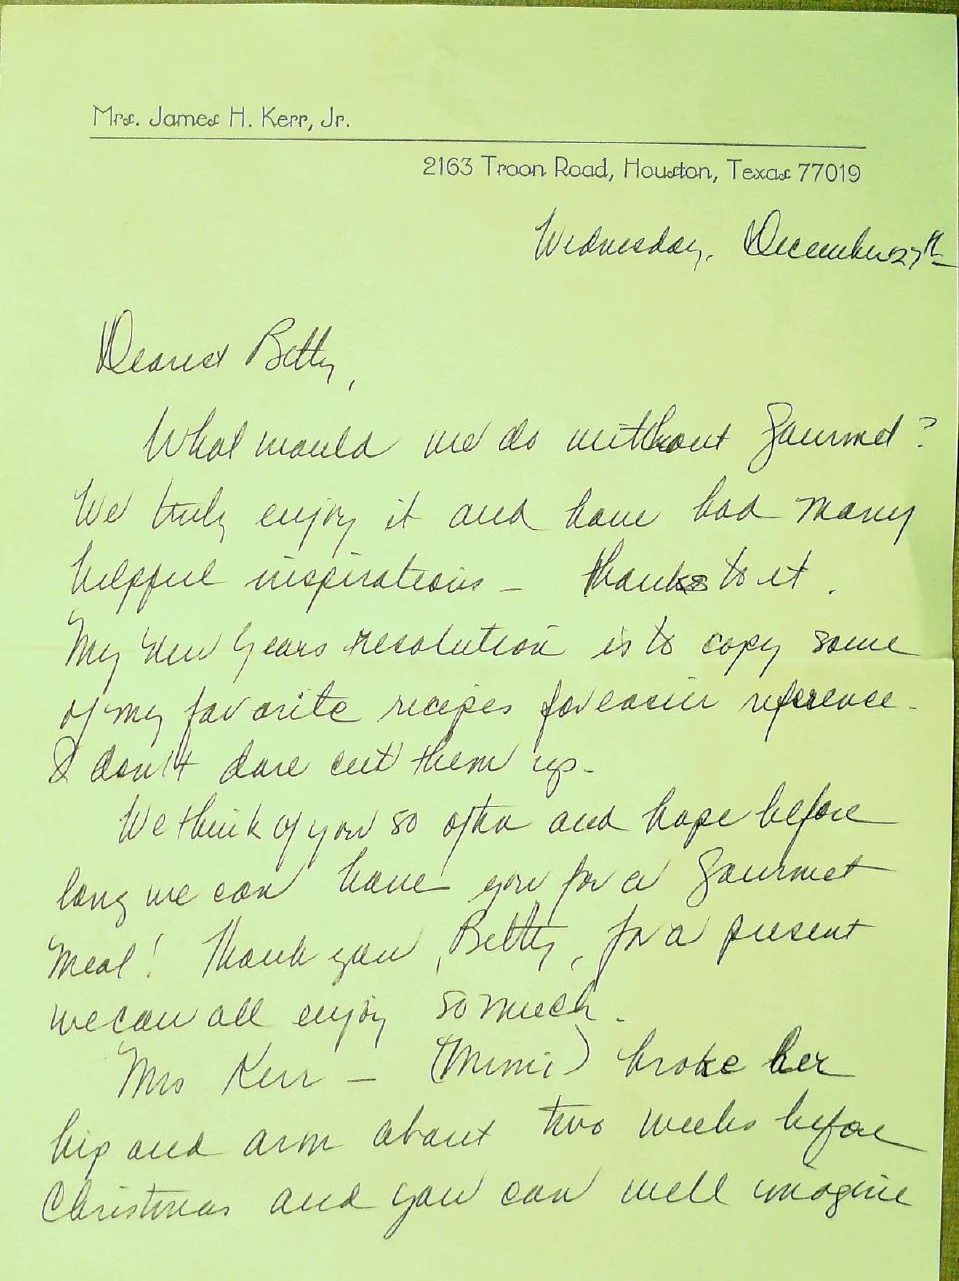 Mrs. James H. Kerr, Jr.
2163 Troon Road, Houston, Texas 77019
Wednesday, December 27th
Dearest Betty,
What would we do without Gourmet?
We truly enjoy it and have had many
helpful inspirations - thanks to it.
My New Years resolution is to copy some
of my favorite recipes for easier reference.
I don't dare cut them up.
We think of you so often and hope before
long we can have you for a Gourmet
meal! Thank you, Betty, for a present
we can all enjoy so much.
Mrs Kerr - (Mimi) broke her
hip and arm about two weeks before
Christmas and you can well imagine